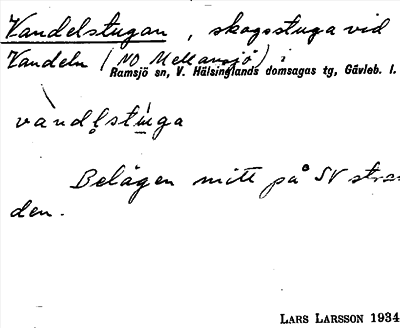 Vandelstugan, skogsstuga vid
Vandeln (NO Mellansjö) i
Ramsjö sn, V. Hälsinglands domsagas tg, Gävleb. l.
vàndl̥stụ̄ga
Belägen mitt på SV stran
den.
LARS LARSSON 1934